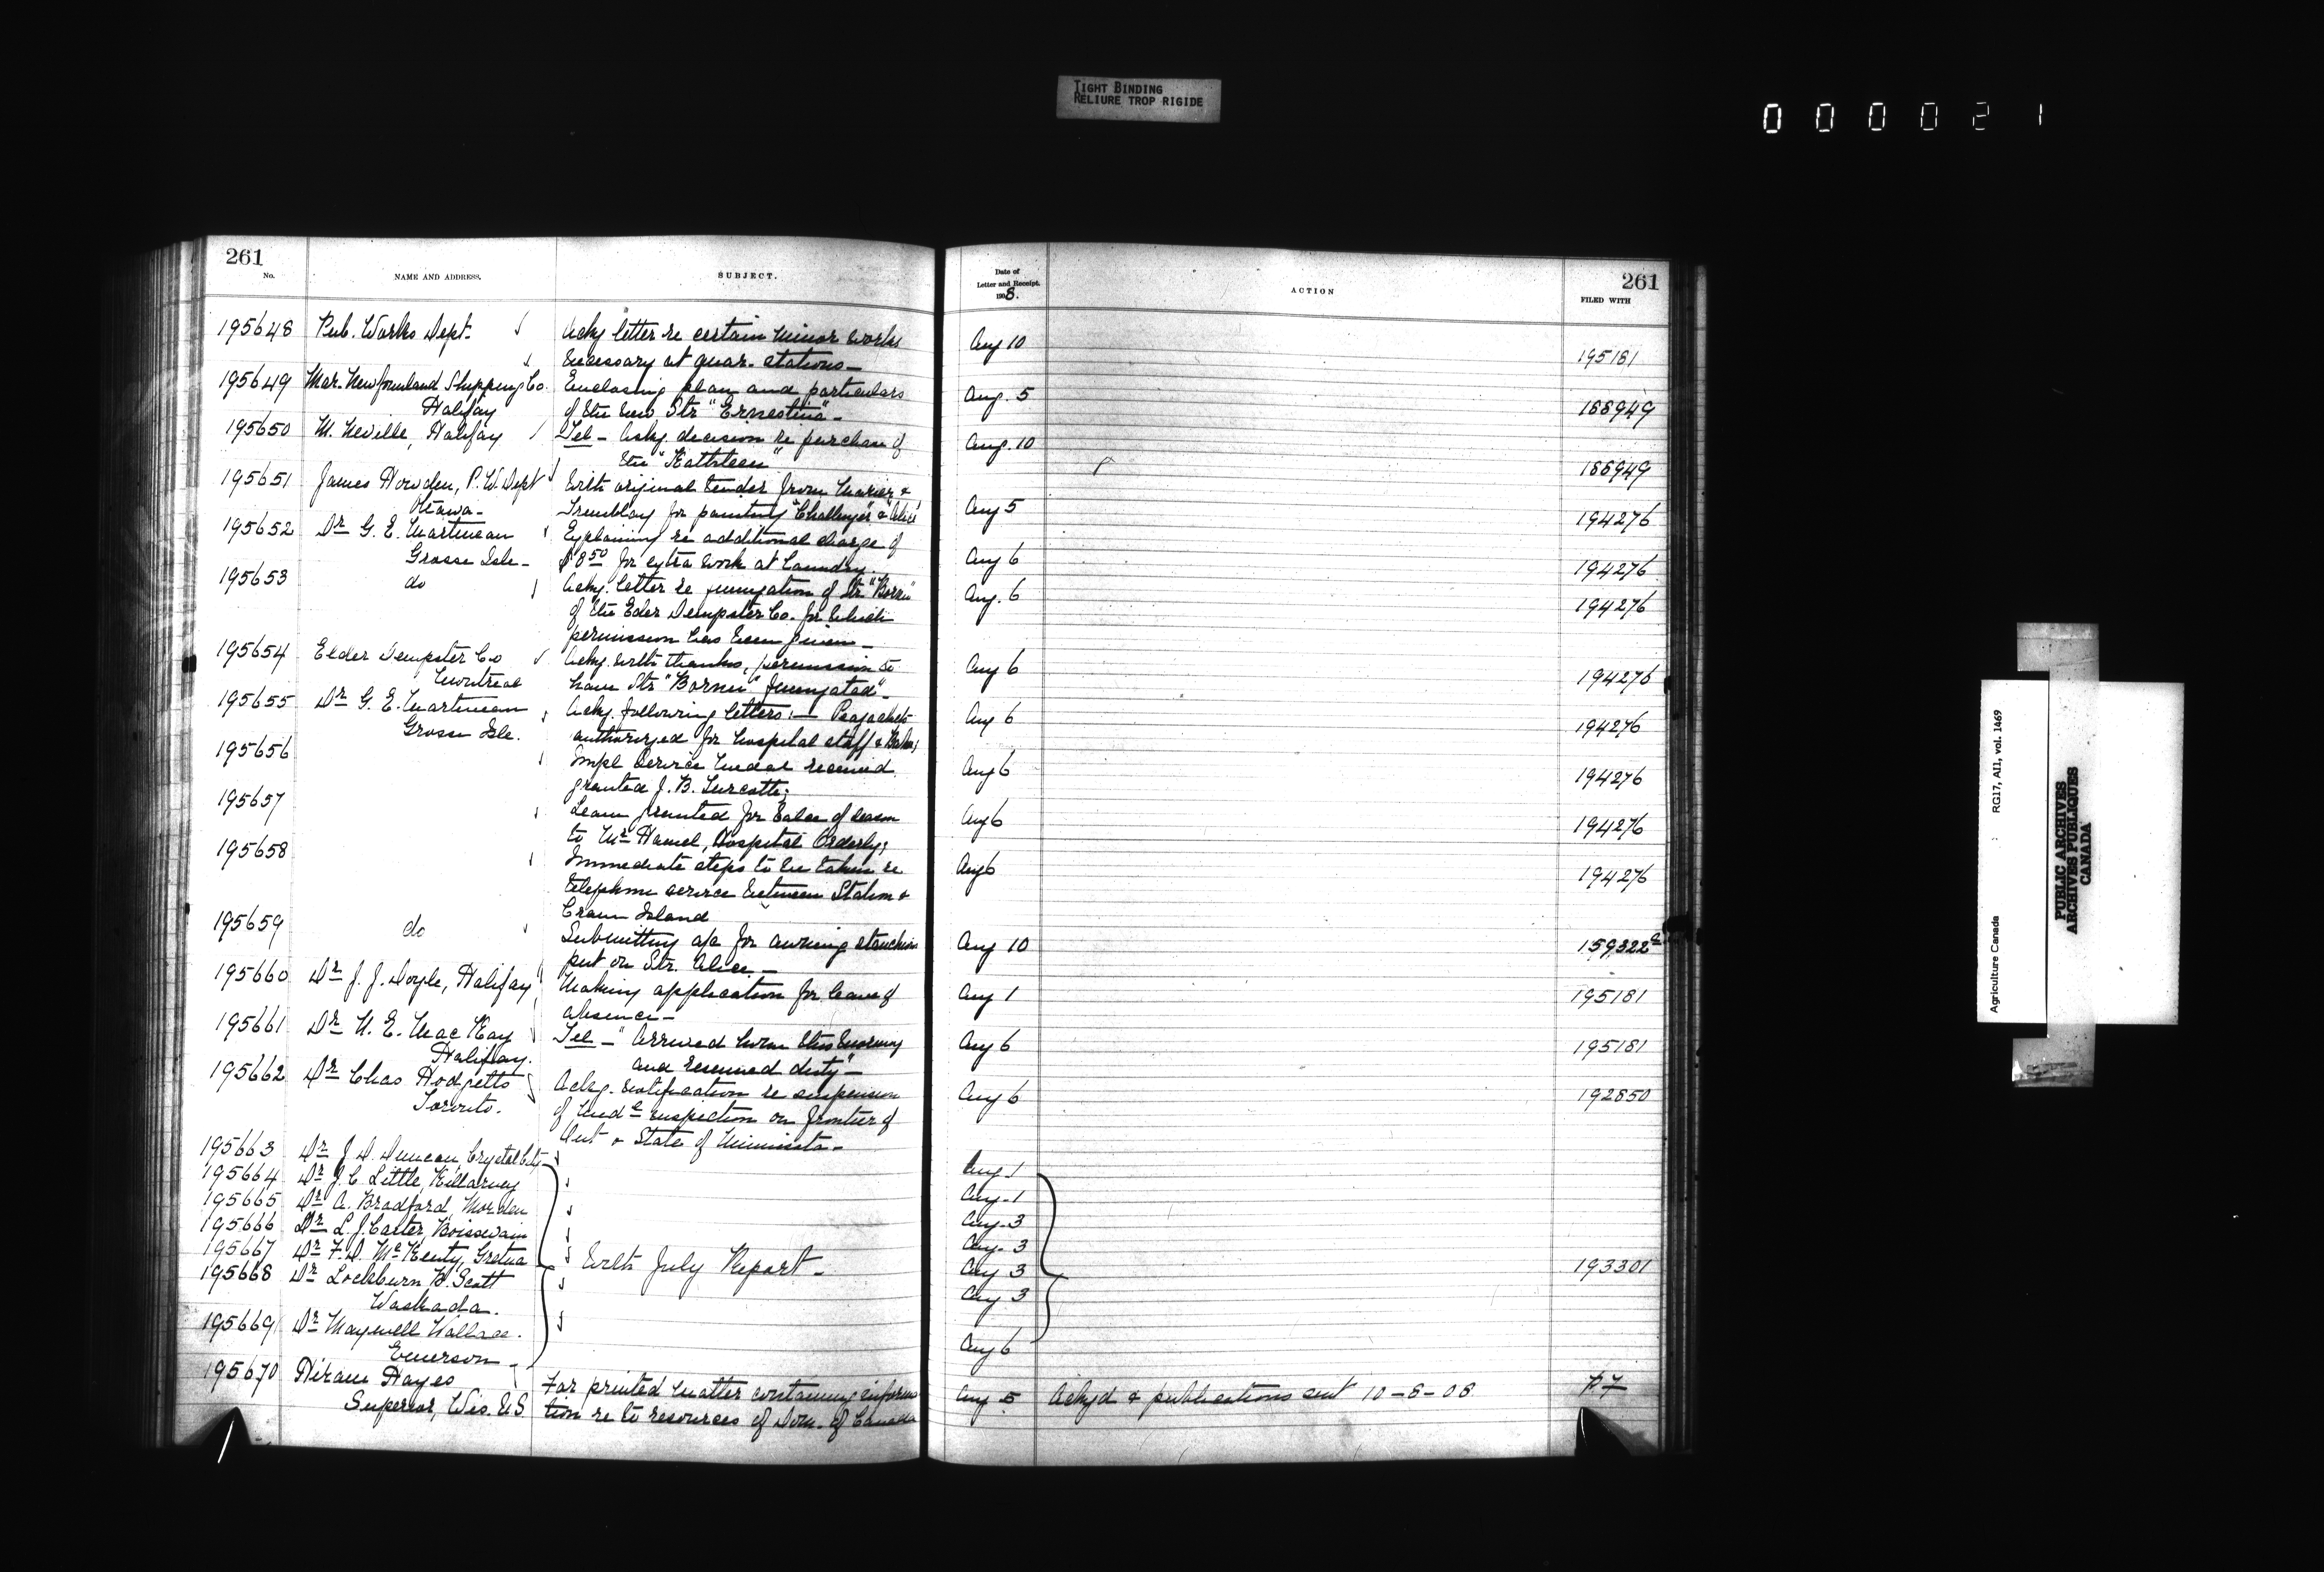 TIGHT BINDING
RELIURE TROP RIGIDE
000021
261
No.
NAME AND ADDRESS.
SUBJECT.
Date of
Letter and Receipt.
1908.
ACTION
261
FILED WITH
195648 Pub. Works Dept. Ackg letter re certain minor works Aug 10 195181
necessary at quar. stations—
195649 Mar. Newfoundland Shipping Co. Enclosing plan and particulars Aug. 5 188949
Halifax of the new Str "Ernestina"—
195650 M. Neville, Halifax Tel — Askg. decision re purchase of Aug. 10 188949
the "Kathleen"
195651 James Howden, P. W. Dept With original tender from &
Ottawa— Tremblay for painting "Challenger" & "Alice" Aug 5 194276
195652 Dr G. E. Martineau Explaining re additional charge of
Grosse Isle— $8.50 for extra work at Laundry. Aug 6 194276
195653 do Ackg. letter re fumigation of Str "Bornu" Aug. 6 194276
of the Elder Dempster Co. for which
permission has been given—
195654 Elder Dempster Co Ackg. with thanks, permission to Aug 6 194276
Montreal have Str "Bornu" fumigated"—
195655 Dr G. E. Martineau Ackg. following letters:— Aug 6 194276
Grosse Isle. authorized for hospital staff &
195656 Impl service medal received Aug 6 194276
granted J. B. Turcotte;
195657 Leave granted for balce of season Aug 6 194276
to Mr Hamel, Hospital Orderly;
195658 Immediate steps to be taken re Aug 6 194276
telephone service between Station &
Crane Island
195659 do Submitting a/c for awning stanchion Aug 10 159322
put on Str. Alice.—
195660 Dr J. J. Doyle, Halifax Making application for leave of Aug 1 195181
absence—
195661 Dr N. E. MacKay Tel — "Arrived home this evening Aug 6 195181
Halifax. and resumed duty"—
195662 Dr Chas Hodgetts Ackg. notification re suspension Aug 6 192850
Toronto. of med. inspection on frontier of
Ont & State of Minnesota—
195663 Dr J. D. Duncan, Crystal City Aug 1
195664 Dr J. C. Little, Killarney Aug. 1
195665 Dr A. Bradford, Morden Aug. 3
195666 Dr L. J. Carter, Boissevain Aug. 3
195667 Dr F. D. McKenty, Gretna With July Report— Aug 3 193301
195668 Dr Lockburn B. Scott Aug 3
Waskada.
195669 Dr Maxwell Wallace. Aug 6
Emerson—
195670 Hiram Hayes For printed matter containing informa Aug 5 Ackgd & publications sent 10-8-08
Superior, Wis. U.S. tion re to resources of Dom. of Canada
Agriculture Canada RG17, AII, vol. 1469
PUBLIC ARCHIVES
ARCHIVES PUBLIQUES
CANADA